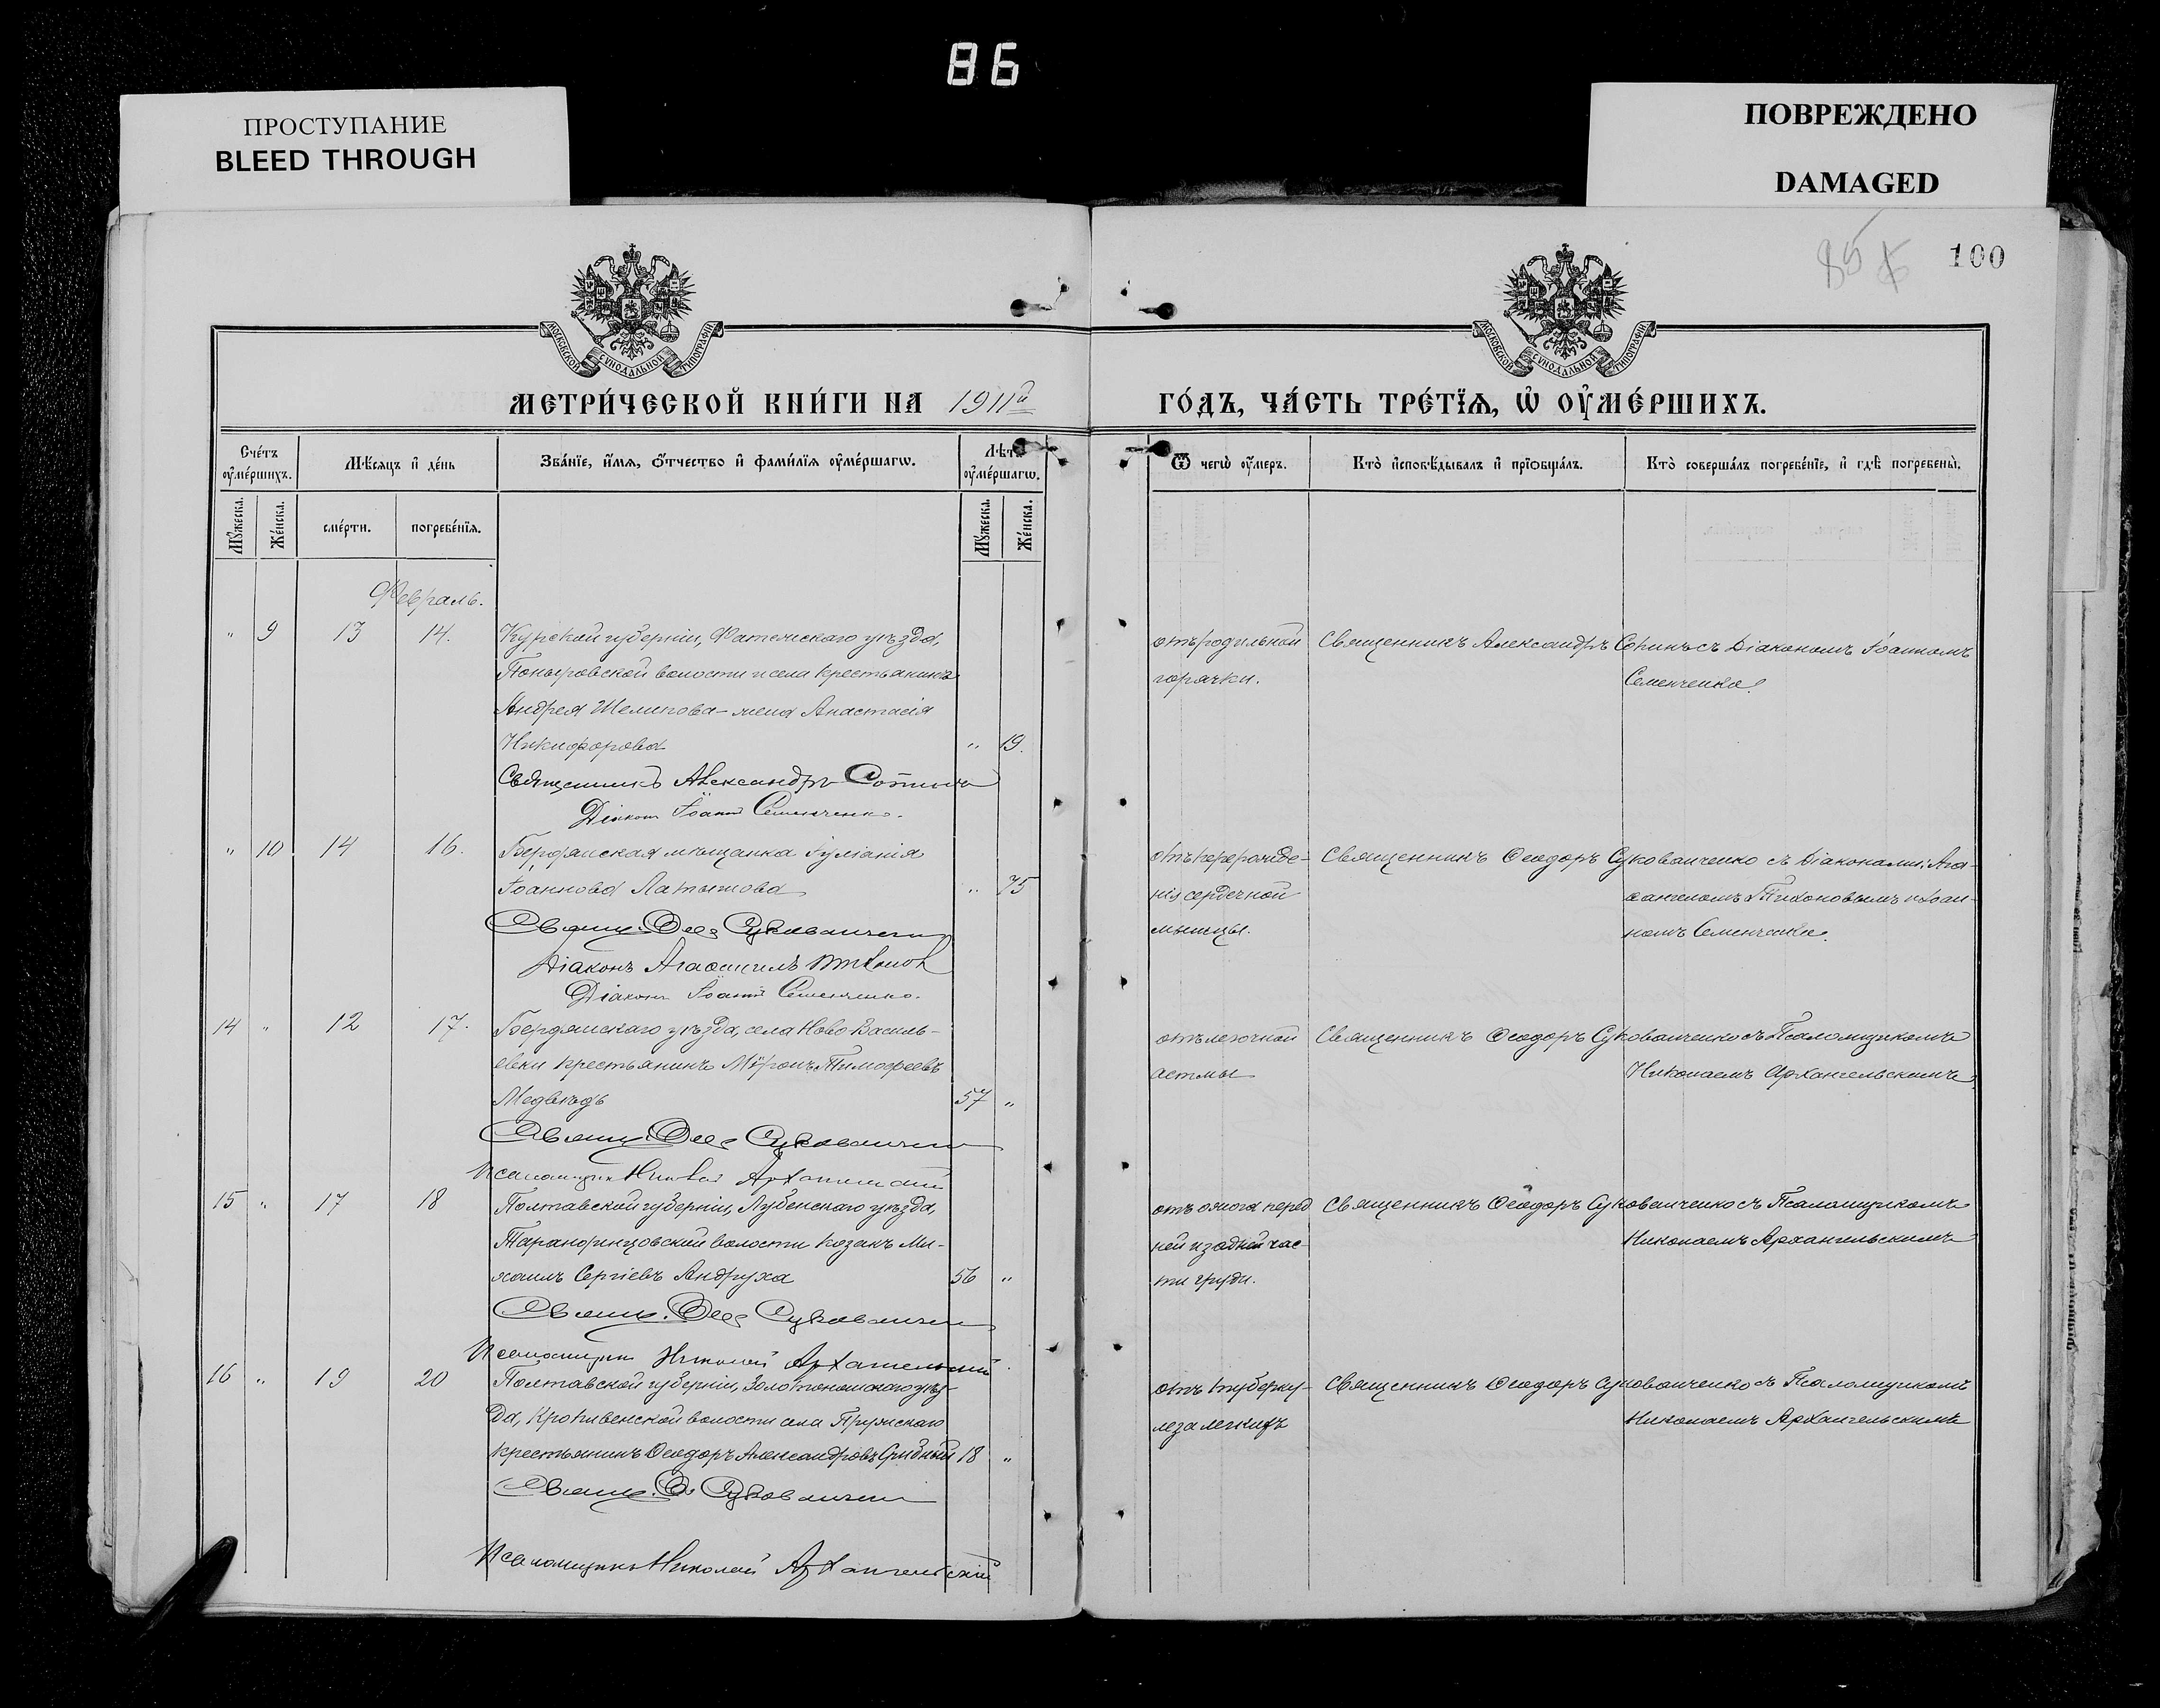 86
ПРОСТУПАНИЕ
BLEED THROUGH
ПОВРЕЖДЕНО
DAMAGED
85
100
МОСКОВСКОЙ СУНОДАЛЬНОЙ ТИПОГРАФІИ
МОСКОВСКОЙ СУНОДАЛЬНОЙ ТИПОГРАФІИ
МЕТРИ́ЧЕСКОЙ КНИ́ГИ НА 1911й ГО́ДЪ, ЧА́СТЬ ТРЕ́ТЇѦ, Ѡ ОУ҆МЕ́РШИХЪ.
Сче́тъ оу҆ме́ршихъ.
Мѣ́сѧцъ и҆ де́нь
Зва́нїе, и҆́мѧ, ѻ҆́тчество и҆ фами́лїѧ оу҆ме́ршагѡ.
Лѣ́та оу҆ме́ршагѡ.
Ѿ чегѡ̀ оу҆́меръ.
Кто̀ и҆сповѣ́дывалъ и҆ прїобща́лъ.
Кто̀ соверша́лъ погребе́нїе, и҆ гдѣ̀ погребены̀.
Мꙋ́жеска.
Же́нска.
сме́рти.
погребе́нїѧ.
Мꙋ́жеска.
Же́нска.
Февраль.
" 9 13 14. Курской губерніи, Фатежскаго уѣзда,
Поныровской волости и села крестьянина
Андрея Шелепова жена Анастасія
Никифорова " 19.
Священникъ Александръ
Діаконъ Іоаннъ Семенченко.
отъ родильной
горячки.
Священникъ Александръ съ Діакономъ Іоанномъ
Семенченко.
" 10 14 16. Бердянская мѣщанка Іуліанія
Іоаннова Латышова " 75
Свящ. Ѳеод Суковаченко
Діаконъ Агаѳангелъ Тихонов
Діаконъ Іоаннъ Семенченко.
отъ перерожде-
нія сердечной
мышцы.
Священникъ Ѳеодоръ съ Діаконами: Ага-
ѳангеломъ Тихоновымъ и Іоан-
номъ Семенченко.
14 " 12 17. Бердянскаго уѣзда, села Ново-Василь-
евки крестьянинъ Мѵронъ Тимофеевъ
Медвѣдь 57 "
Свящ. Ѳеод
Псаломщикъ Николай Архангельскій
отъ легочной
астмы
Священникъ Ѳеодоръ съ Псаломщикомъ
Николаемъ Архангельскимъ
15 " 17 18 Полтавской губерніи, Лубенскаго уѣзда,
Тарандинцовской волости козакъ Ми-
хаилъ Сергіевъ Андруха 56 "
Свящ. Ѳеод
Псаломщикъ Николай Архангельскій
отъ ожога перед
ней и задней час-
ти груди.
Священникъ Ѳеодоръ съ Псаломщикомъ
Николаемъ Архангельскимъ
16 " 19 20 Полтавской губерніи, Золотоношскаго уѣз-
да, Кропивенской волости села
крестьянинъ Ѳеодоръ Александровъ 18 "
Свящ. Ѳ
Псаломщикъ Николай Архангельскій
отъ туберку-
леза легкихъ
Священникъ Ѳеодоръ съ Псаломщикомъ
Николаемъ Архангельскимъ